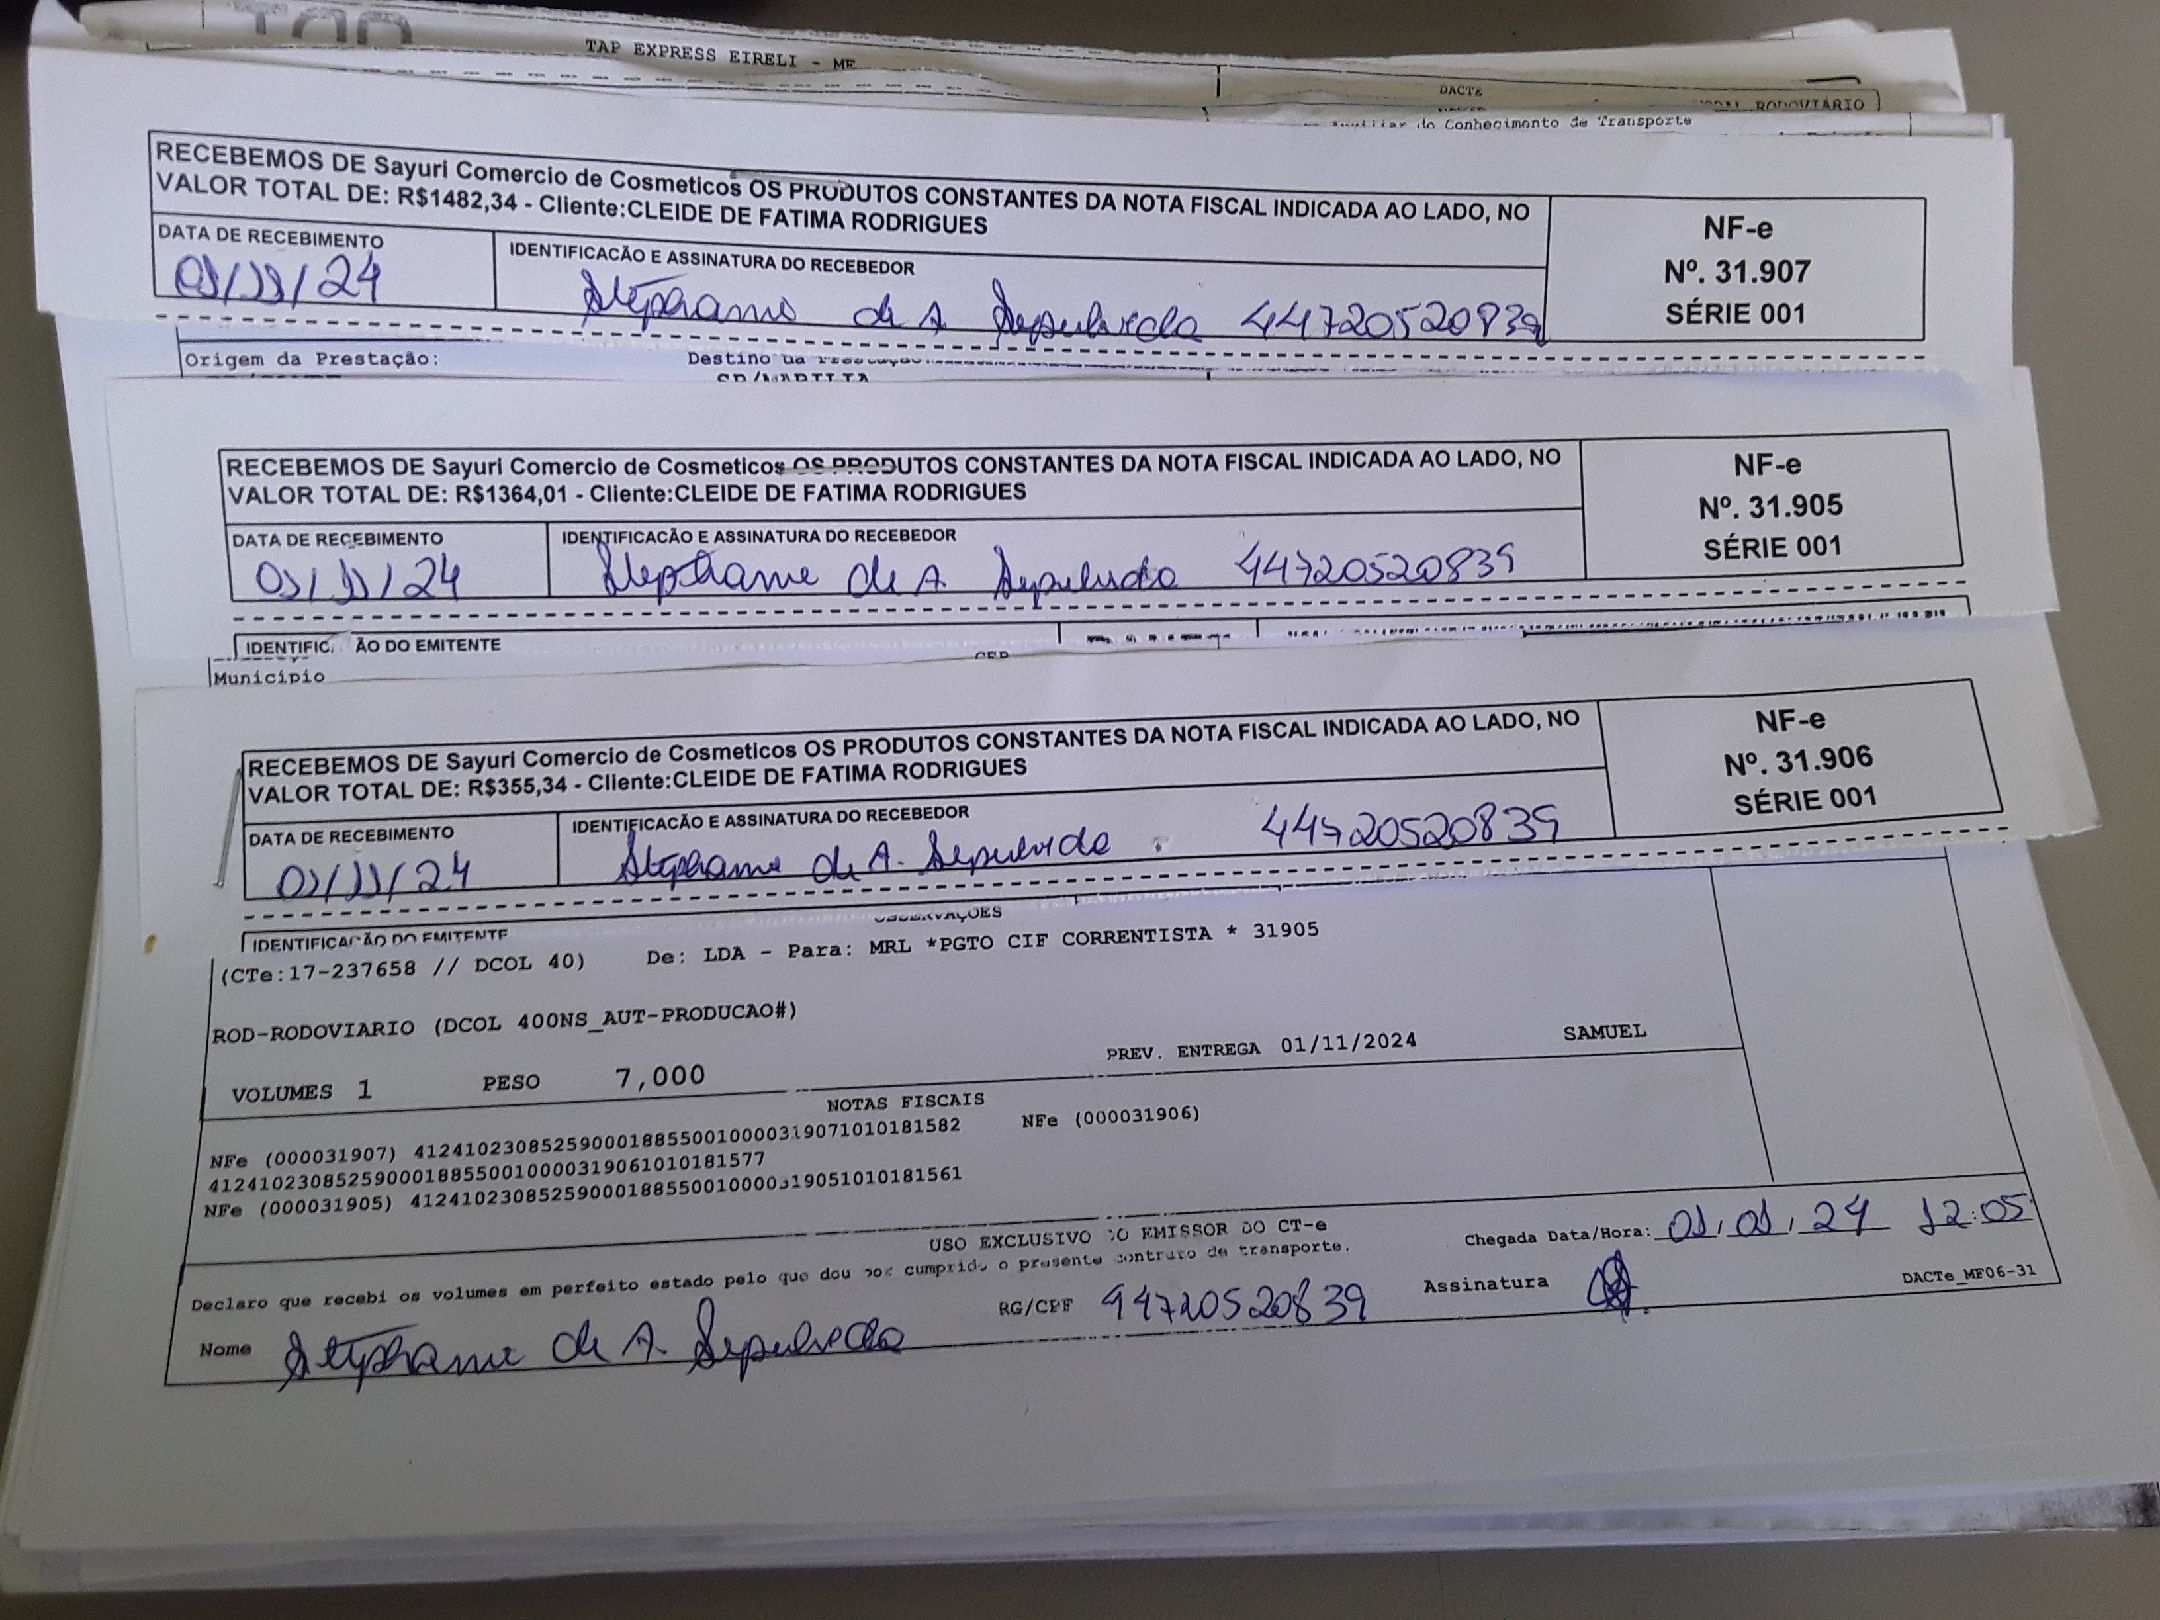 TAP EXPRESS EIRELI - ME
DACTE
RODOVIÁRIO
do Conhecimento de Transporte
RECEBEMOS DE Sayuri Comercio de Cosmeticos OS PRODUTOS CONSTANTES DA NOTA FISCAL INDICADA AO LADO, NO
VALOR TOTAL DE: R$1482,34 - Cliente:CLEIDE DE FATIMA RODRIGUES
NF-e
Nº. 31.907
SÉRIE 001
DATA DE RECEBIMENTO
IDENTIFICACÃO E ASSINATURA DO RECEBEDOR
01/11/24
Stephanie de A Sepulveda 44720520839
Origem da Prestação:
Destino da Prestação:
SP/MARILIA
RECEBEMOS DE Sayuri Comercio de Cosmeticos OS PRODUTOS CONSTANTES DA NOTA FISCAL INDICADA AO LADO, NO
VALOR TOTAL DE: R$1364,01 - Cliente:CLEIDE DE FATIMA RODRIGUES
NF-e
Nº. 31.905
SÉRIE 001
DATA DE RECEBIMENTO
IDENTIFICACÃO E ASSINATURA DO RECEBEDOR
01/11/24
Stephanie de A Sepulveda 44720520839
IDENTIFIC ÃO DO EMITENTE
CEP
Município
RECEBEMOS DE Sayuri Comercio de Cosmeticos OS PRODUTOS CONSTANTES DA NOTA FISCAL INDICADA AO LADO, NO
VALOR TOTAL DE: R$355,34 - Cliente:CLEIDE DE FATIMA RODRIGUES
NF-e
Nº. 31.906
SÉRIE 001
DATA DE RECEBIMENTO
IDENTIFICACÃO E ASSINATURA DO RECEBEDOR
01/11/24
Stephanie de A. Sepulveda 44720520839
OBSERVAÇÕES
IDENTIFICAÇÃO DO EMITENTE
(CTe:17-237658 // DCOL 40) De: LDA - Para: MRL *PGTO CIF CORRENTISTA * 31905
ROD-RODOVIARIO (DCOL 400NS_AUT-PRODUCAO#)
PREV. ENTREGA 01/11/2024 SAMUEL
VOLUMES 1 PESO 7,000
NOTAS FISCAIS
NFe (000031907) 41241023085259000188550010000319071010181582 NFe (000031906)
41241023085259000188550010000319061010181577
NFe (000031905) 41241023085259000188550010000319051010181561
USO EXCLUSIVO DO EMISSOR DO CT-e
Declaro que recebi os volumes em perfeito estado pelo que dou por cumprido o presente contrato de transporte.
Chegada Data/Hora: 01/01/24 12:05
Nome Stephanie de A. Sepulveda RG/CPF 44720520839 Assinatura
DACTe_MF06-31